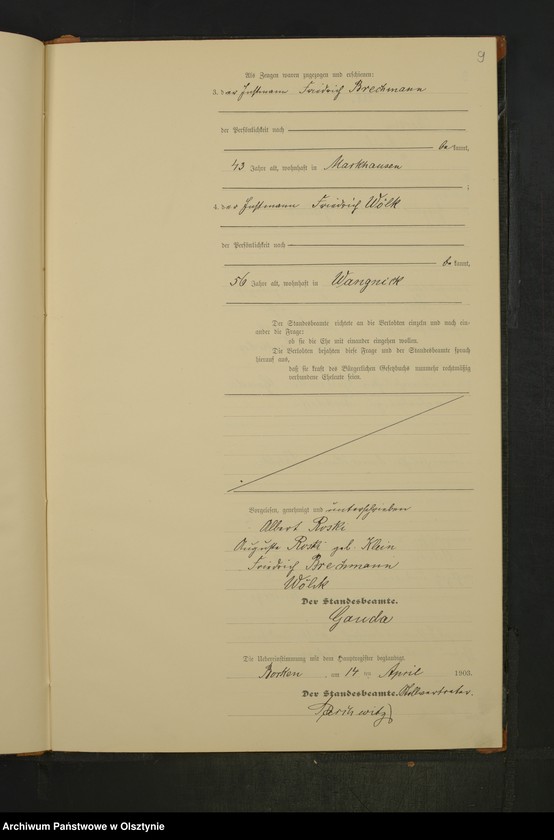 9
Als Zeugen waren zugezogen und erschienen:
3. der Instmann Friedrich Brechmann
der Persönlichkeit nach
be kannt,
43 Jahre alt, wohnhaft in Markhausen
;
4. der Instmann Friedrich Wölk
der Persönlichkeit nach
be kannt,
56 Jahre alt, wohnhaft in Wangnick
Der Standesbeamte richtete an die Verlobten einzeln und nach ein-
ander die Frage:
ob sie die Ehe mit einander eingehen wollen.
Die Verlobten bejahten diese Frage und der Standesbeamte sprach
hierauf aus,
daß sie kraft des Bürgerlichen Gesetzbuchs nunmehr rechtmäßig
verbundene Eheleute seien.
Vorgelesen, genehmigt und unterschrieben
Albert Roski
Auguste Roski geb. Klein
Friedrich Brechmann
Wölk
Der Standesbeamte.
Gauda
Die Uebereinstimmung mit dem Hauptregister beglaubigt.
Borken, am 14 ten April 1903.
Der Standesbeamte. Stellvertreter.
Archiwum Państwowe w Olsztynie